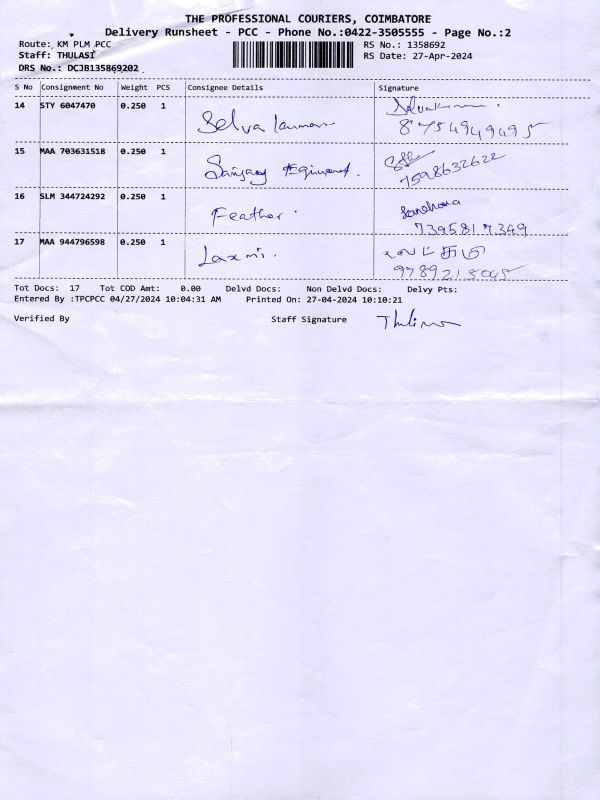 THE PROFESSIONAL COURIERS, COIMBATORE
Delivery Runsheet - PCC - Phone No.:0422-3505555 - Page No.:2
Route: KM PLM PCC RS No.: 1358692
Staff: THULASI RS Date: 27-Apr-2024
DRS No.: DCJB135869202
S No Consignment No Weight PCS Consignee Details Signature
14 STY 6047470 0.250 1 Selva kumar Selvakumar
8754949495
15 MAA 703631518 0.250 1 Sanjay Eqipment.
7598632622
16 SLM 344724292 0.250 1 Feather. Sandhana
7395817349
17 MAA 944796598 0.250 1 Laxmi.
Tot Docs: 17 Tot COD Amt: 0.00 Delvd Docs: Non Delvd Docs: Delvy Pts:
Entered By :TPCPCC 04/27/2024 10:04:31 AM Printed On: 27-04-2024 10:10:21
Verified By Staff Signature